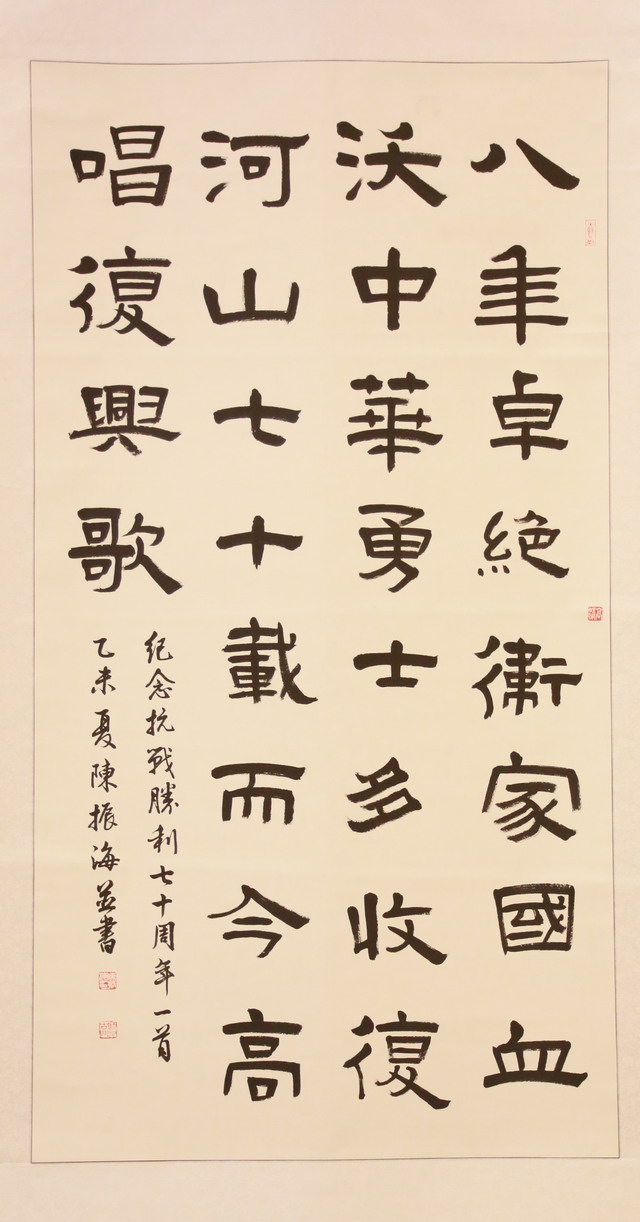 八年卓絶衛家國血
沃中華勇士多收復
河山七十載而今高
唱復興歌
紀念抗戰勝利七十周年一首
乙未夏陳振海並書